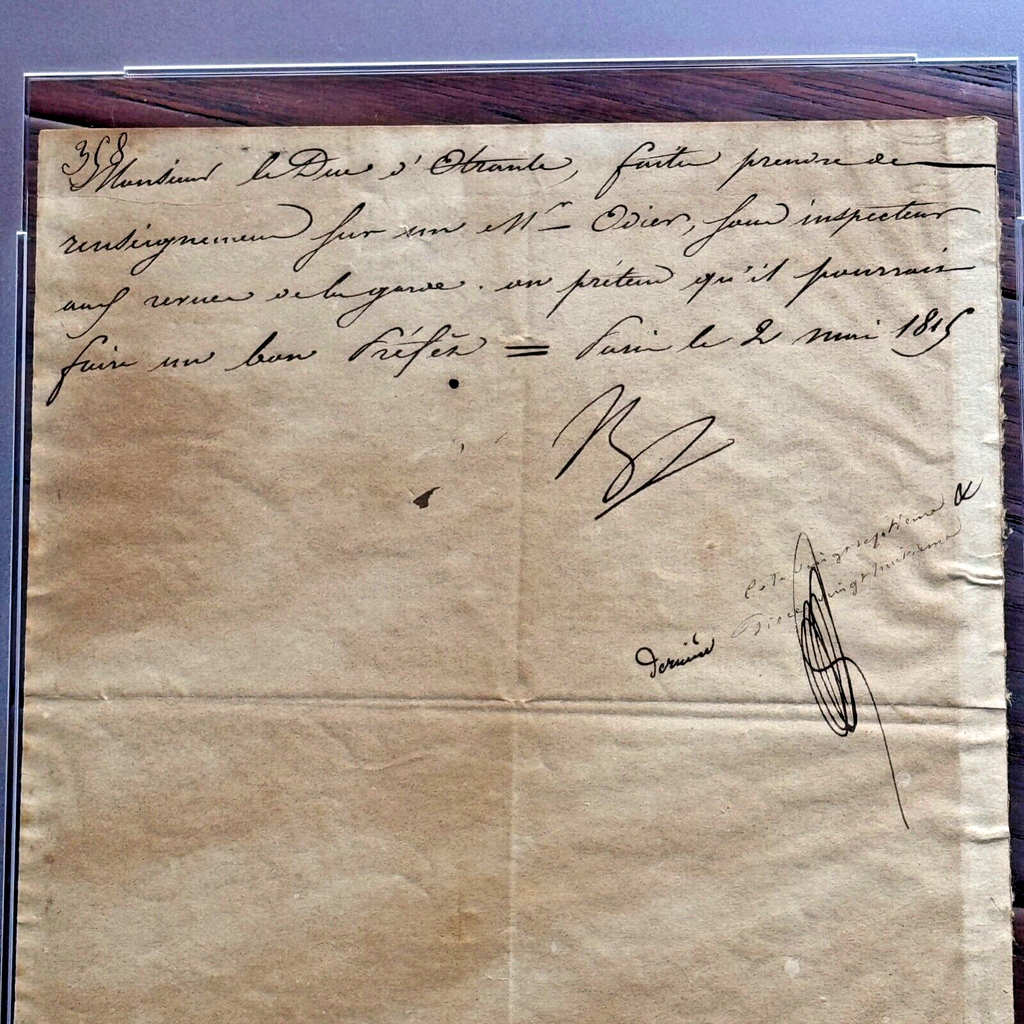 358
Monsieur le Duc d'Otrante, faites prendre des
renseignemens sur un Mr Odier, sous inspecteur
aux revues de la garde. on prétend qu'il pourrait
faire un bon Préfêt = Paris le 2 mai 1815
cote vingt septieme &
dernière
Piece vingt huitieme